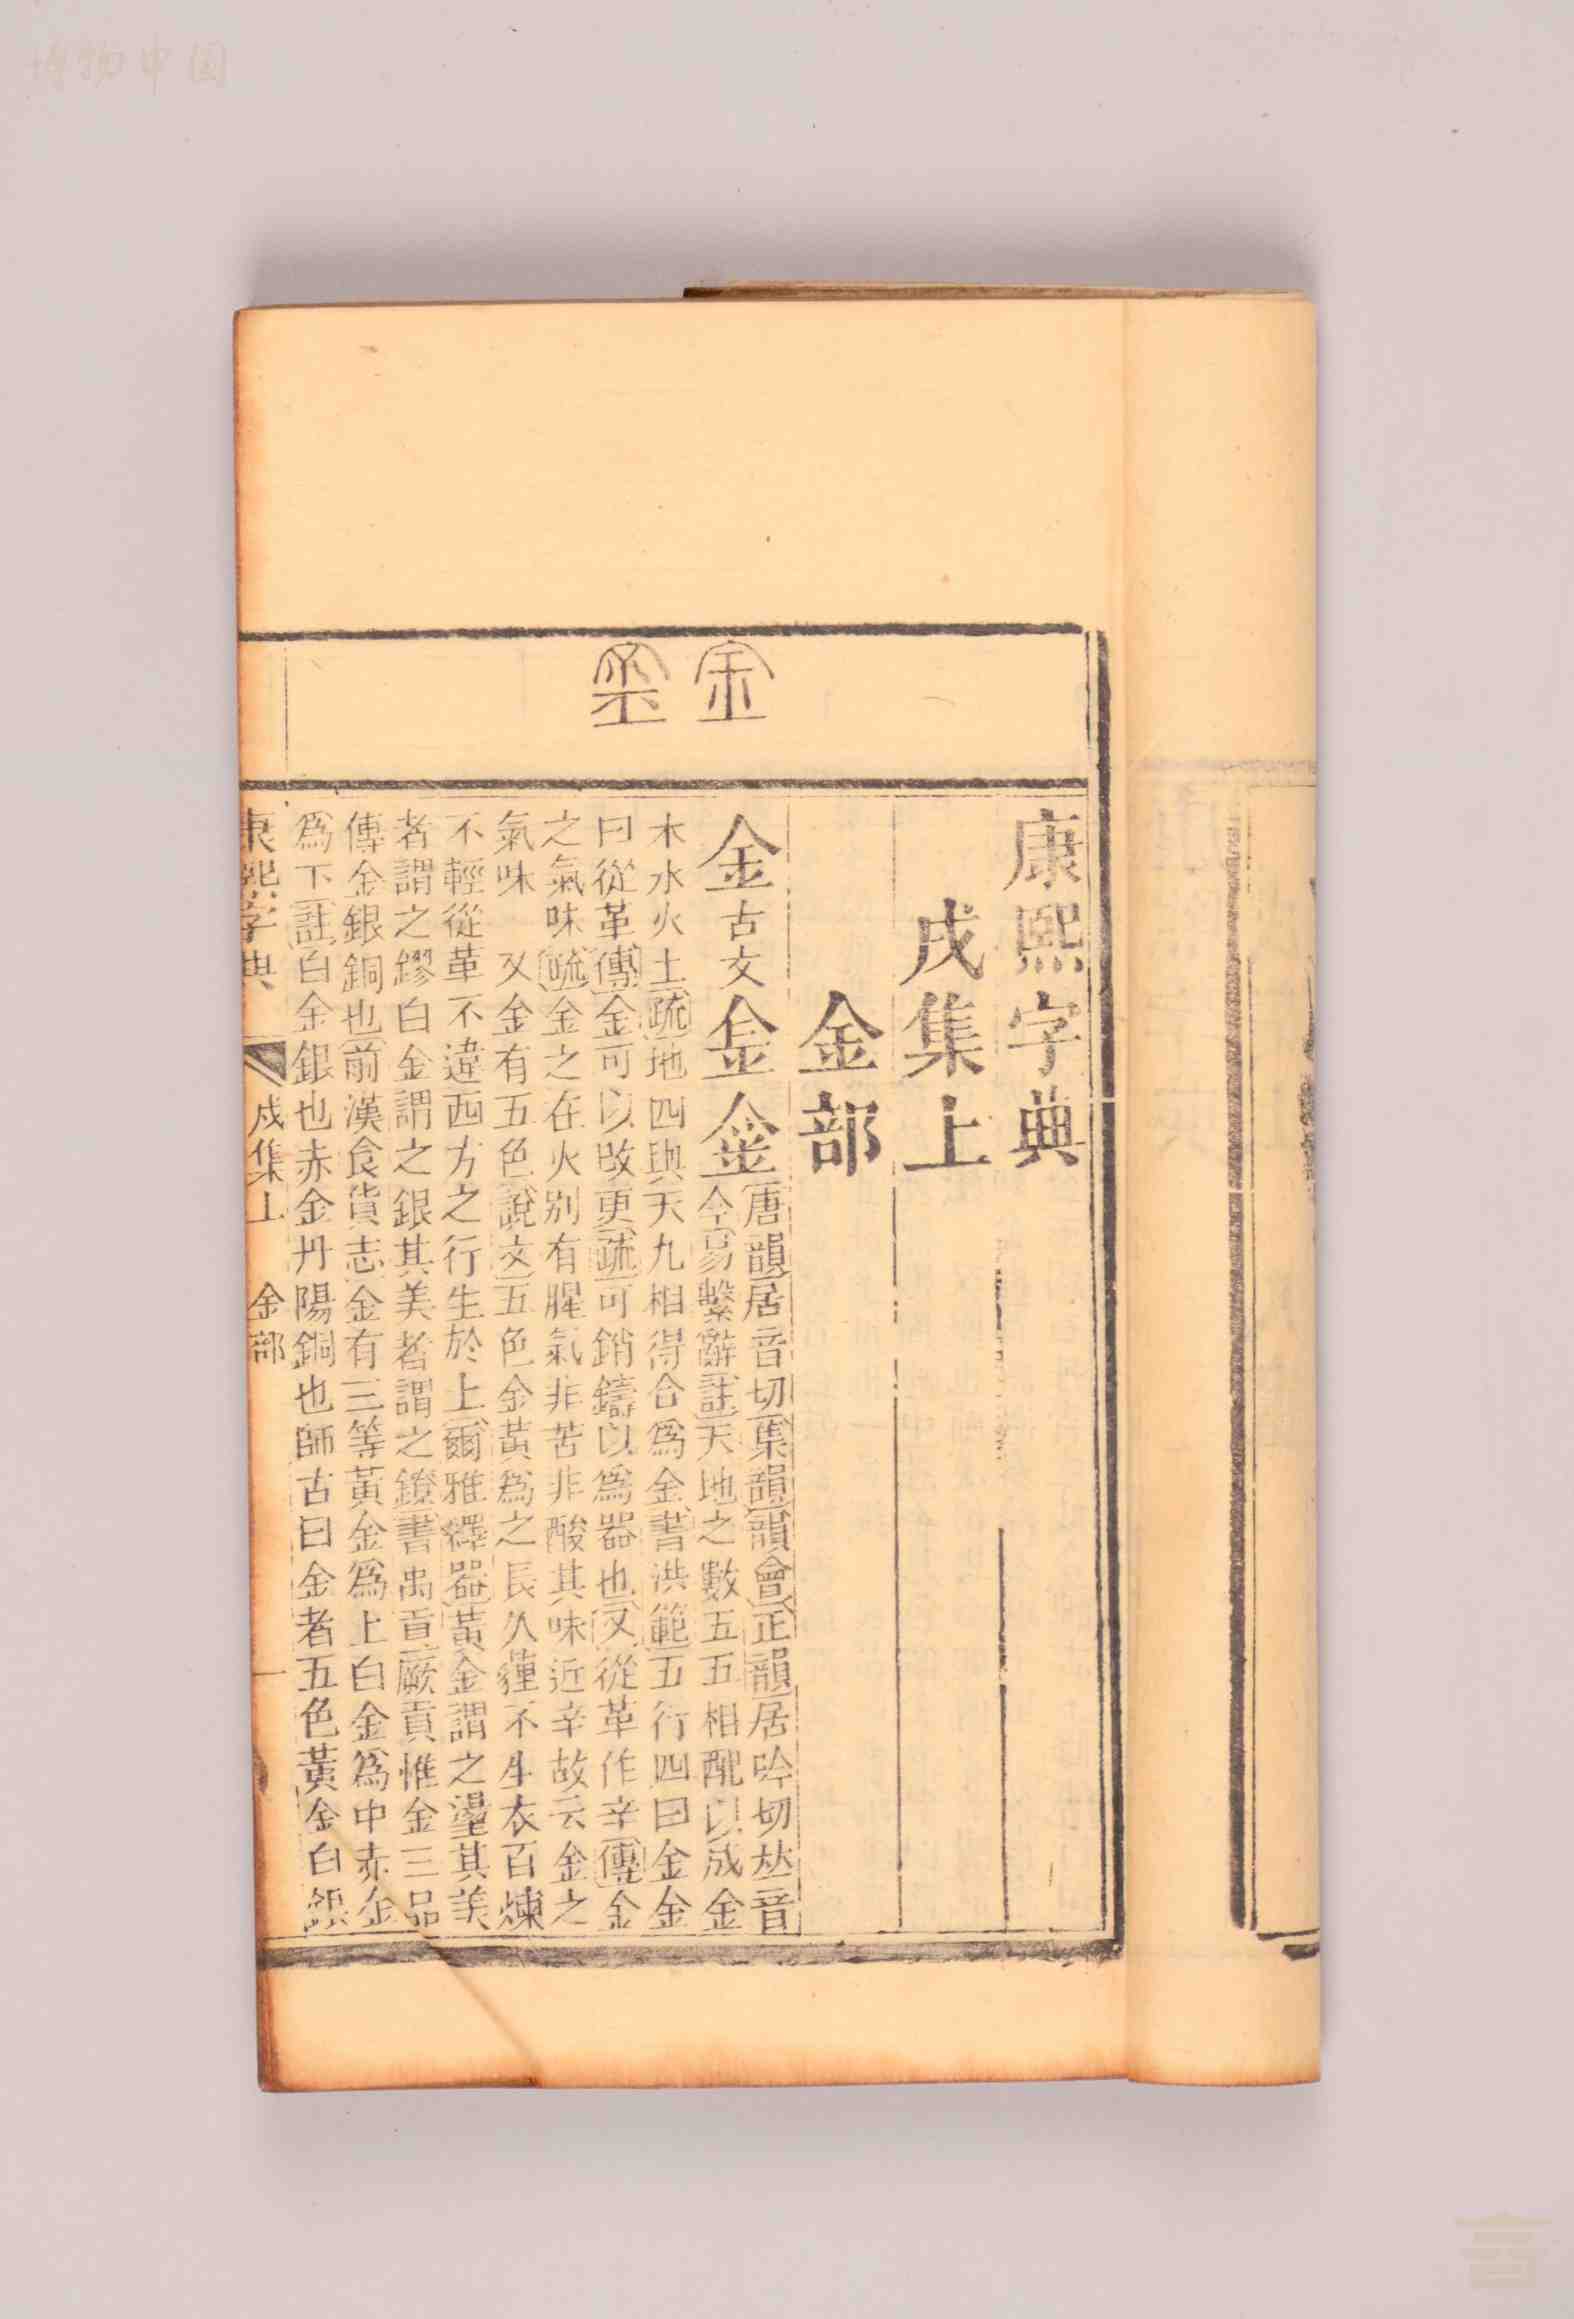 博物中国
康熙字典
戌集上
金部
金古文𨤾釡唐韻居音切集韻韻會正韻居吟切𠀤音
今易繫辭註天地之數五五相配以成金
木水火土疏地四與天九相得合爲金書洪範五行四曰金金
曰從革傳金可以改更疏可銷鑄以爲器也又從革作辛傳金
之氣味疏金之在火別有腥氣非苦非酸其味近辛故云金之
氣味 又金有五色說文五色金黃爲之長久薶不生衣百煉
不輕從革不違西方之行生於土爾雅釋器黃金謂之璗其美
者謂之鏐白金謂之銀其美者謂之鐐書禹貢厥貢惟金三品
傳金銀銅也前漢食貨志金有三等黃金爲上白金爲中赤金
爲下註白金銀也赤金丹陽銅也師古曰金者五色黃金白銀
康熙字典 戌集上 金部 一